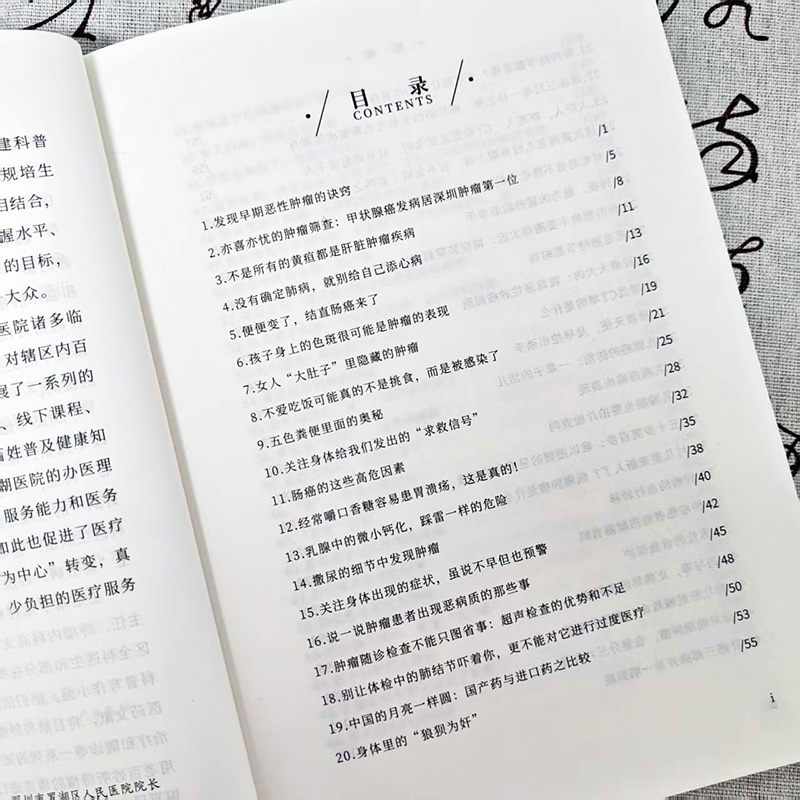 建科普
规培生
结合，
握水平、
的目标，
大众。
医院诸多临
对辖区内百
展了一系列的
、线下课程、
姓普及健康知
湖医院的办医理
服务能力和医务
如此也促进了医疗
为中心”转变，真
少负担的医疗服务
圳市罗湖区人民医院院长
目 录
CONTENTS
1.发现早期恶性肿瘤的诀窍 /1
2.亦喜亦忧的肿瘤筛查：甲状腺癌发病居深圳肿瘤第一位 /5
3.不是所有的黄疸都是肝脏肿瘤疾病 /8
4.没有确定肺病，就别给自己添心病 /11
5.便便变了，结直肠癌来了 /13
6.孩子身上的色斑很可能是肿瘤的表现 /16
7.女人“大肚子”里隐藏的肿瘤 /19
8.不爱吃饭可能真的不是挑食，而是被感染了 /21
9.五色粪便里面的奥秘 /25
10.关注身体给我们发出的“求救信号” /28
11.肠癌的这些高危因素 /32
12.经常嚼口香糖容易患胃溃疡，这是真的！ /35
13.乳腺中的微小钙化，踩雷一样的危险 /38
14.撒尿的细节中发现肿瘤 /40
15.关注身体出现的症状，虽说不早但也预警 /42
16.说一说肿瘤患者出现恶病质的那些事 /45
17.肿瘤随诊检查不能只图省事：超声检查的优势和不足 /48
18.别让体检中的肺结节吓着你，更不能对它进行过度医疗 /50
19.中国的月亮一样圆：国产药与进口药之比较 /53
20.身体里的“狼狈为奸” /55
i